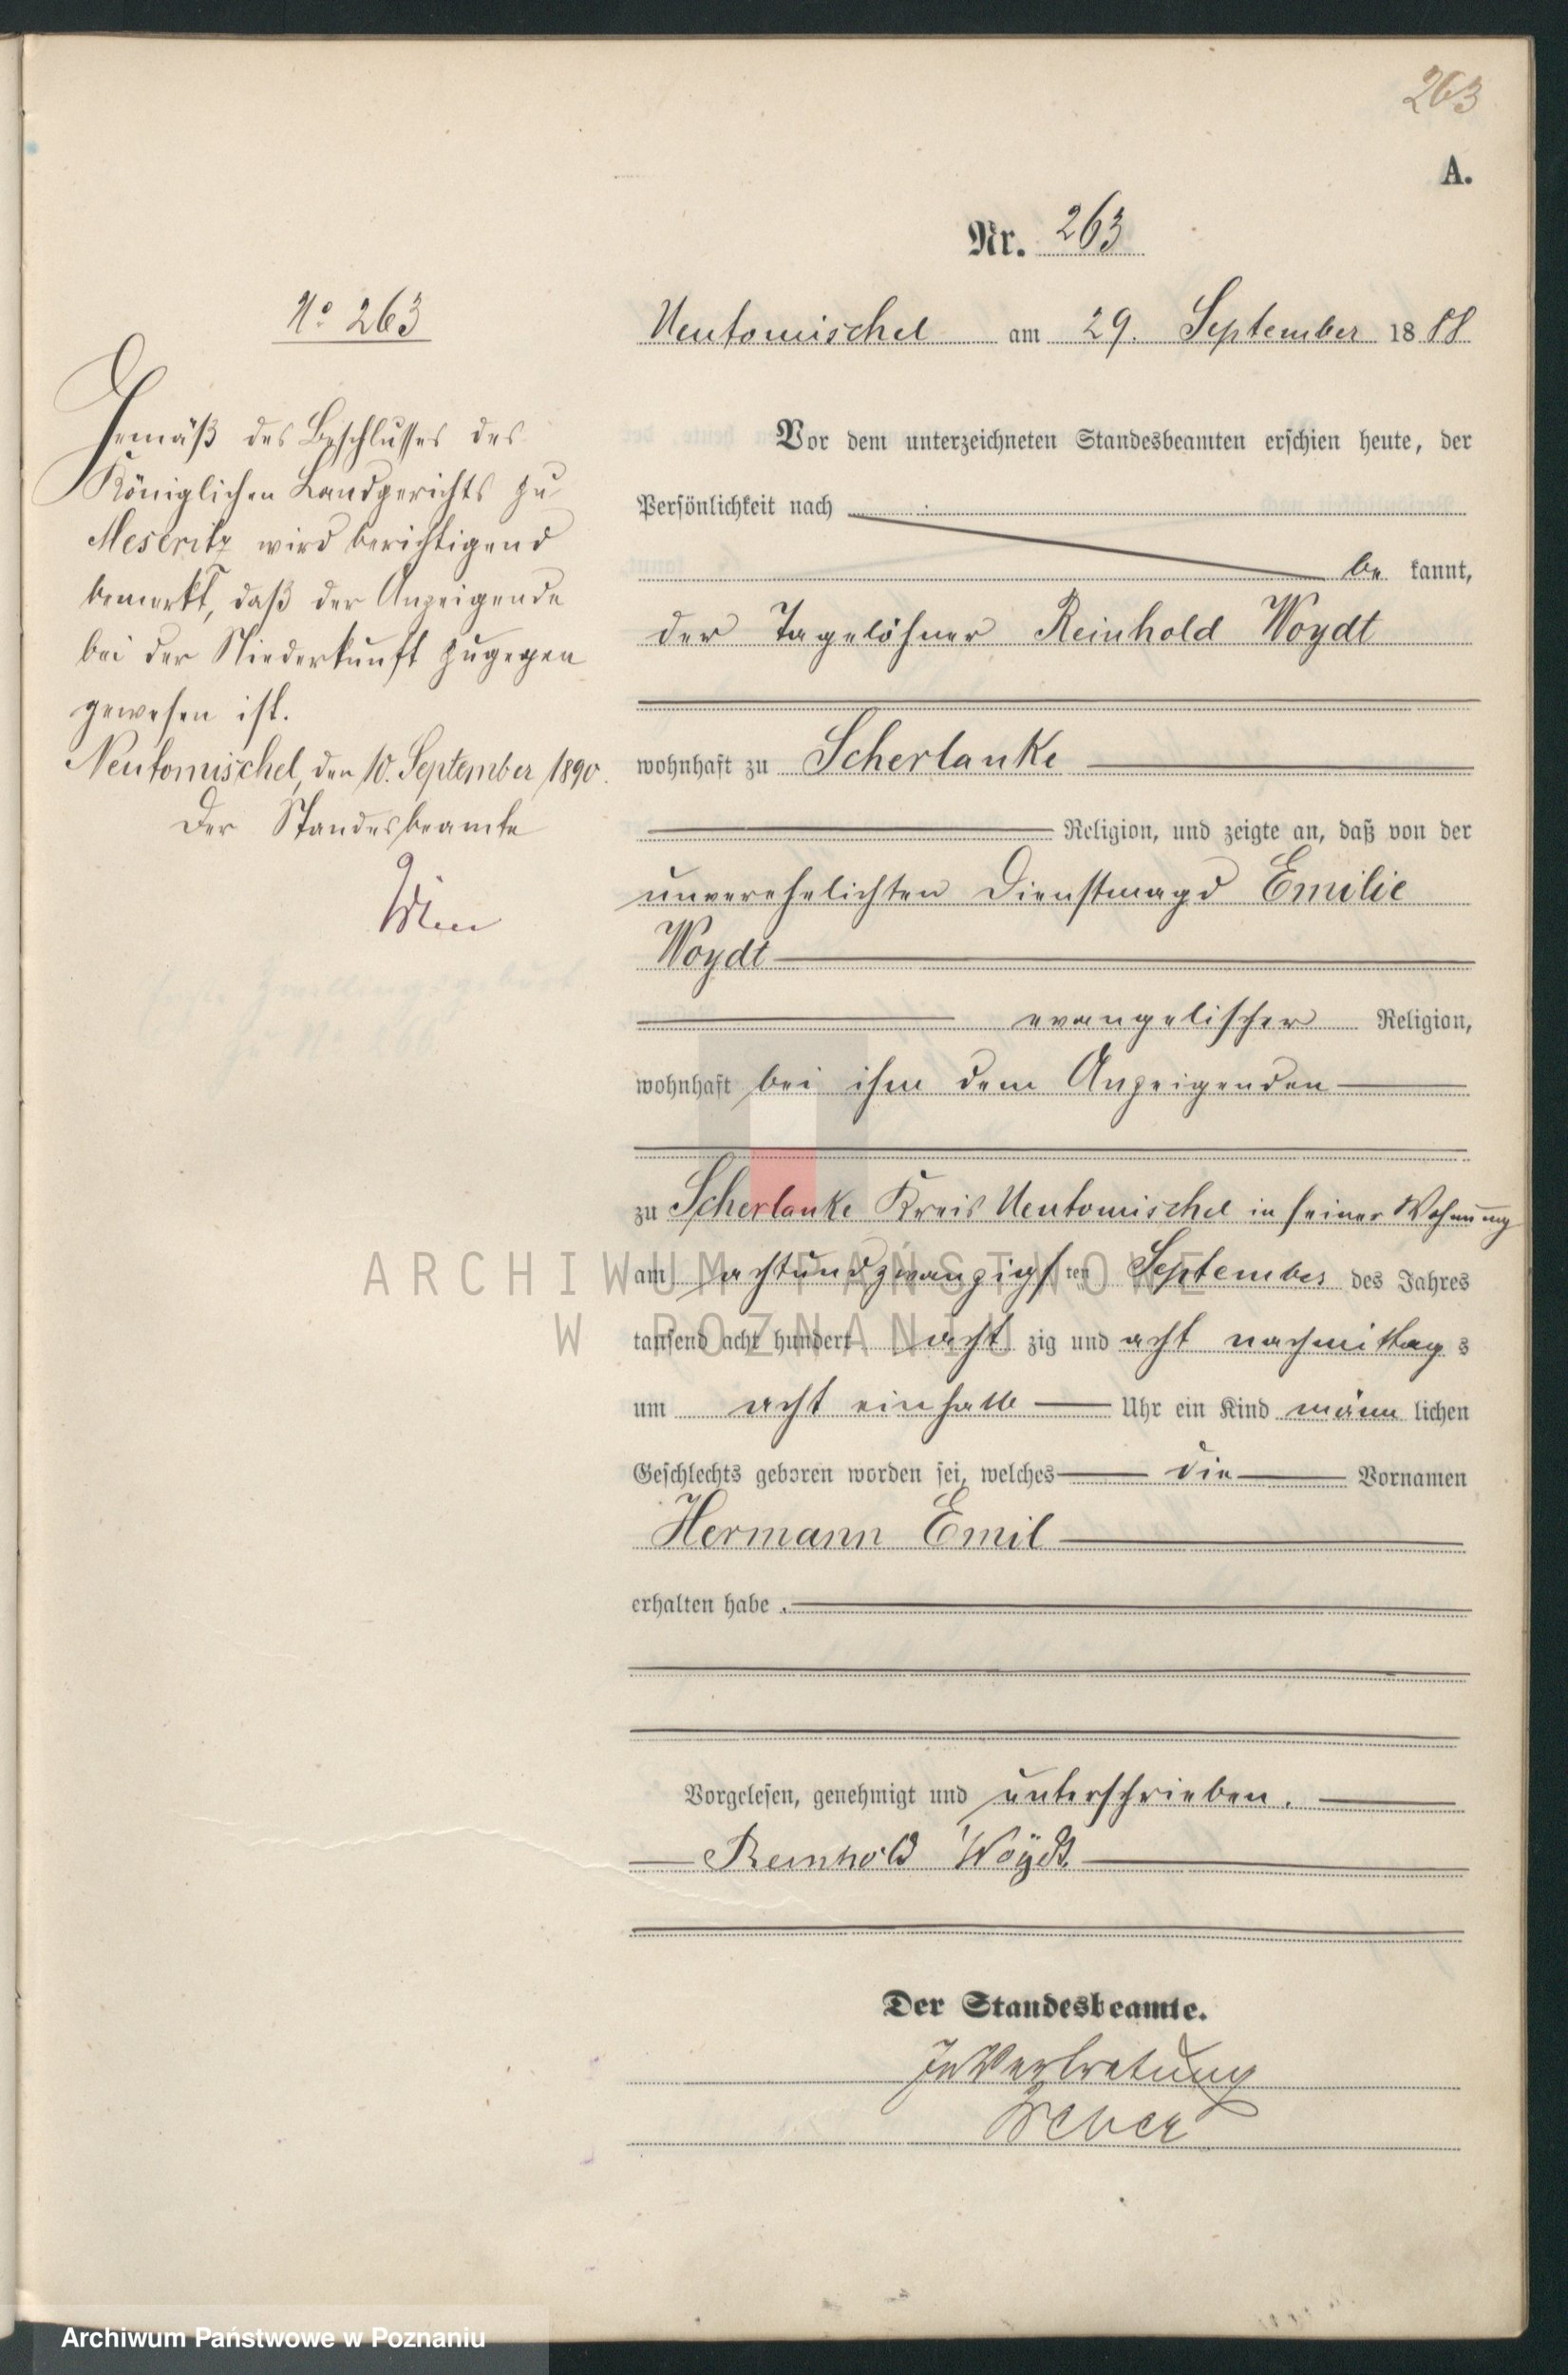 263
A.
Nr. 263
No 263
Gemäß des Beschlusses des
Königlichen Landgerichts zu
Meseritz wird berichtigend
bemerkt, daß der Anzeigende
bei der Niederkunft zugegen
gewesen ist.
Neutomischel, den 10. September 1890.
Der Standesbeamte
Neutomischel am 29. September 1888
Vor dem unterzeichneten Standesbeamten erschien heute, der
Persönlichkeit nach
be kannt,
der Tagelöhner Reinhold Woydt
wohnhaft zu Scherlanke
Religion, und zeigte an, daß von der
unverehelichten Dienstmagd Emilie
Woydt
evangelischer Religion,
wohnhaft bei ihm dem Anzeigenden
zu Scherlanke Kreis Neutomischel in seiner Wohnung
am achtundzwanzigsten September des Jahres
tausend acht hundert acht zig und acht nachmittag s
um acht einhalb Uhr ein Kind männ lichen
Geschlechts geboren worden sei, welches die Vornamen
Hermann Emil
erhalten habe.
Vorgelesen, genehmigt und unterschrieben.
Reinhold Woÿdt.
Der Standesbeamte.
In Vertretung
ARCHIWUM PAŃSTWOWE
W POZNANIU
Archiwum Państwowe w Poznaniu